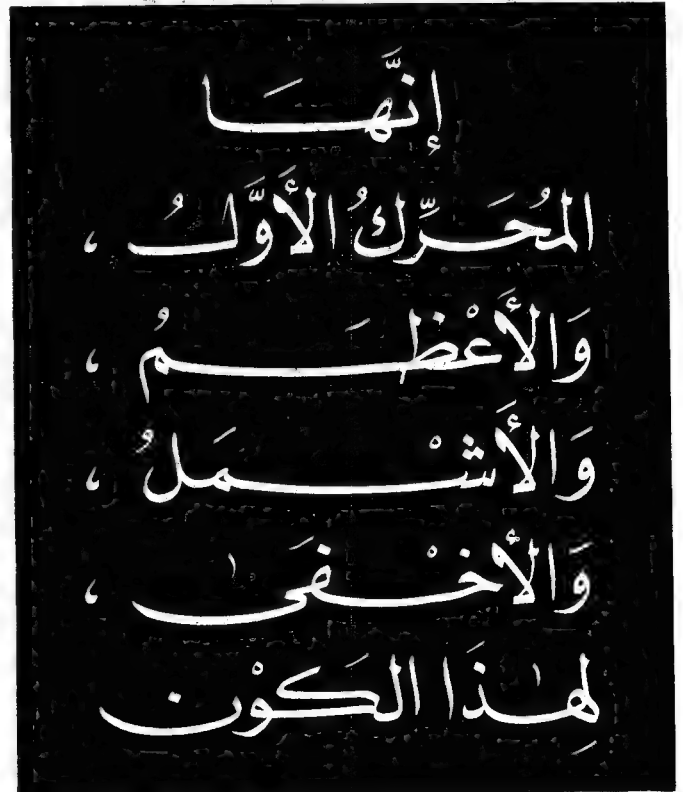 إنَّهَا
المُحَرِّكُ الأَوَّلُ ،
وَالأَعْظَمُ ،
وَالأَشْمَلُ ،
وَالأَخْفَى ،
لِهٰذَا الكَوْن